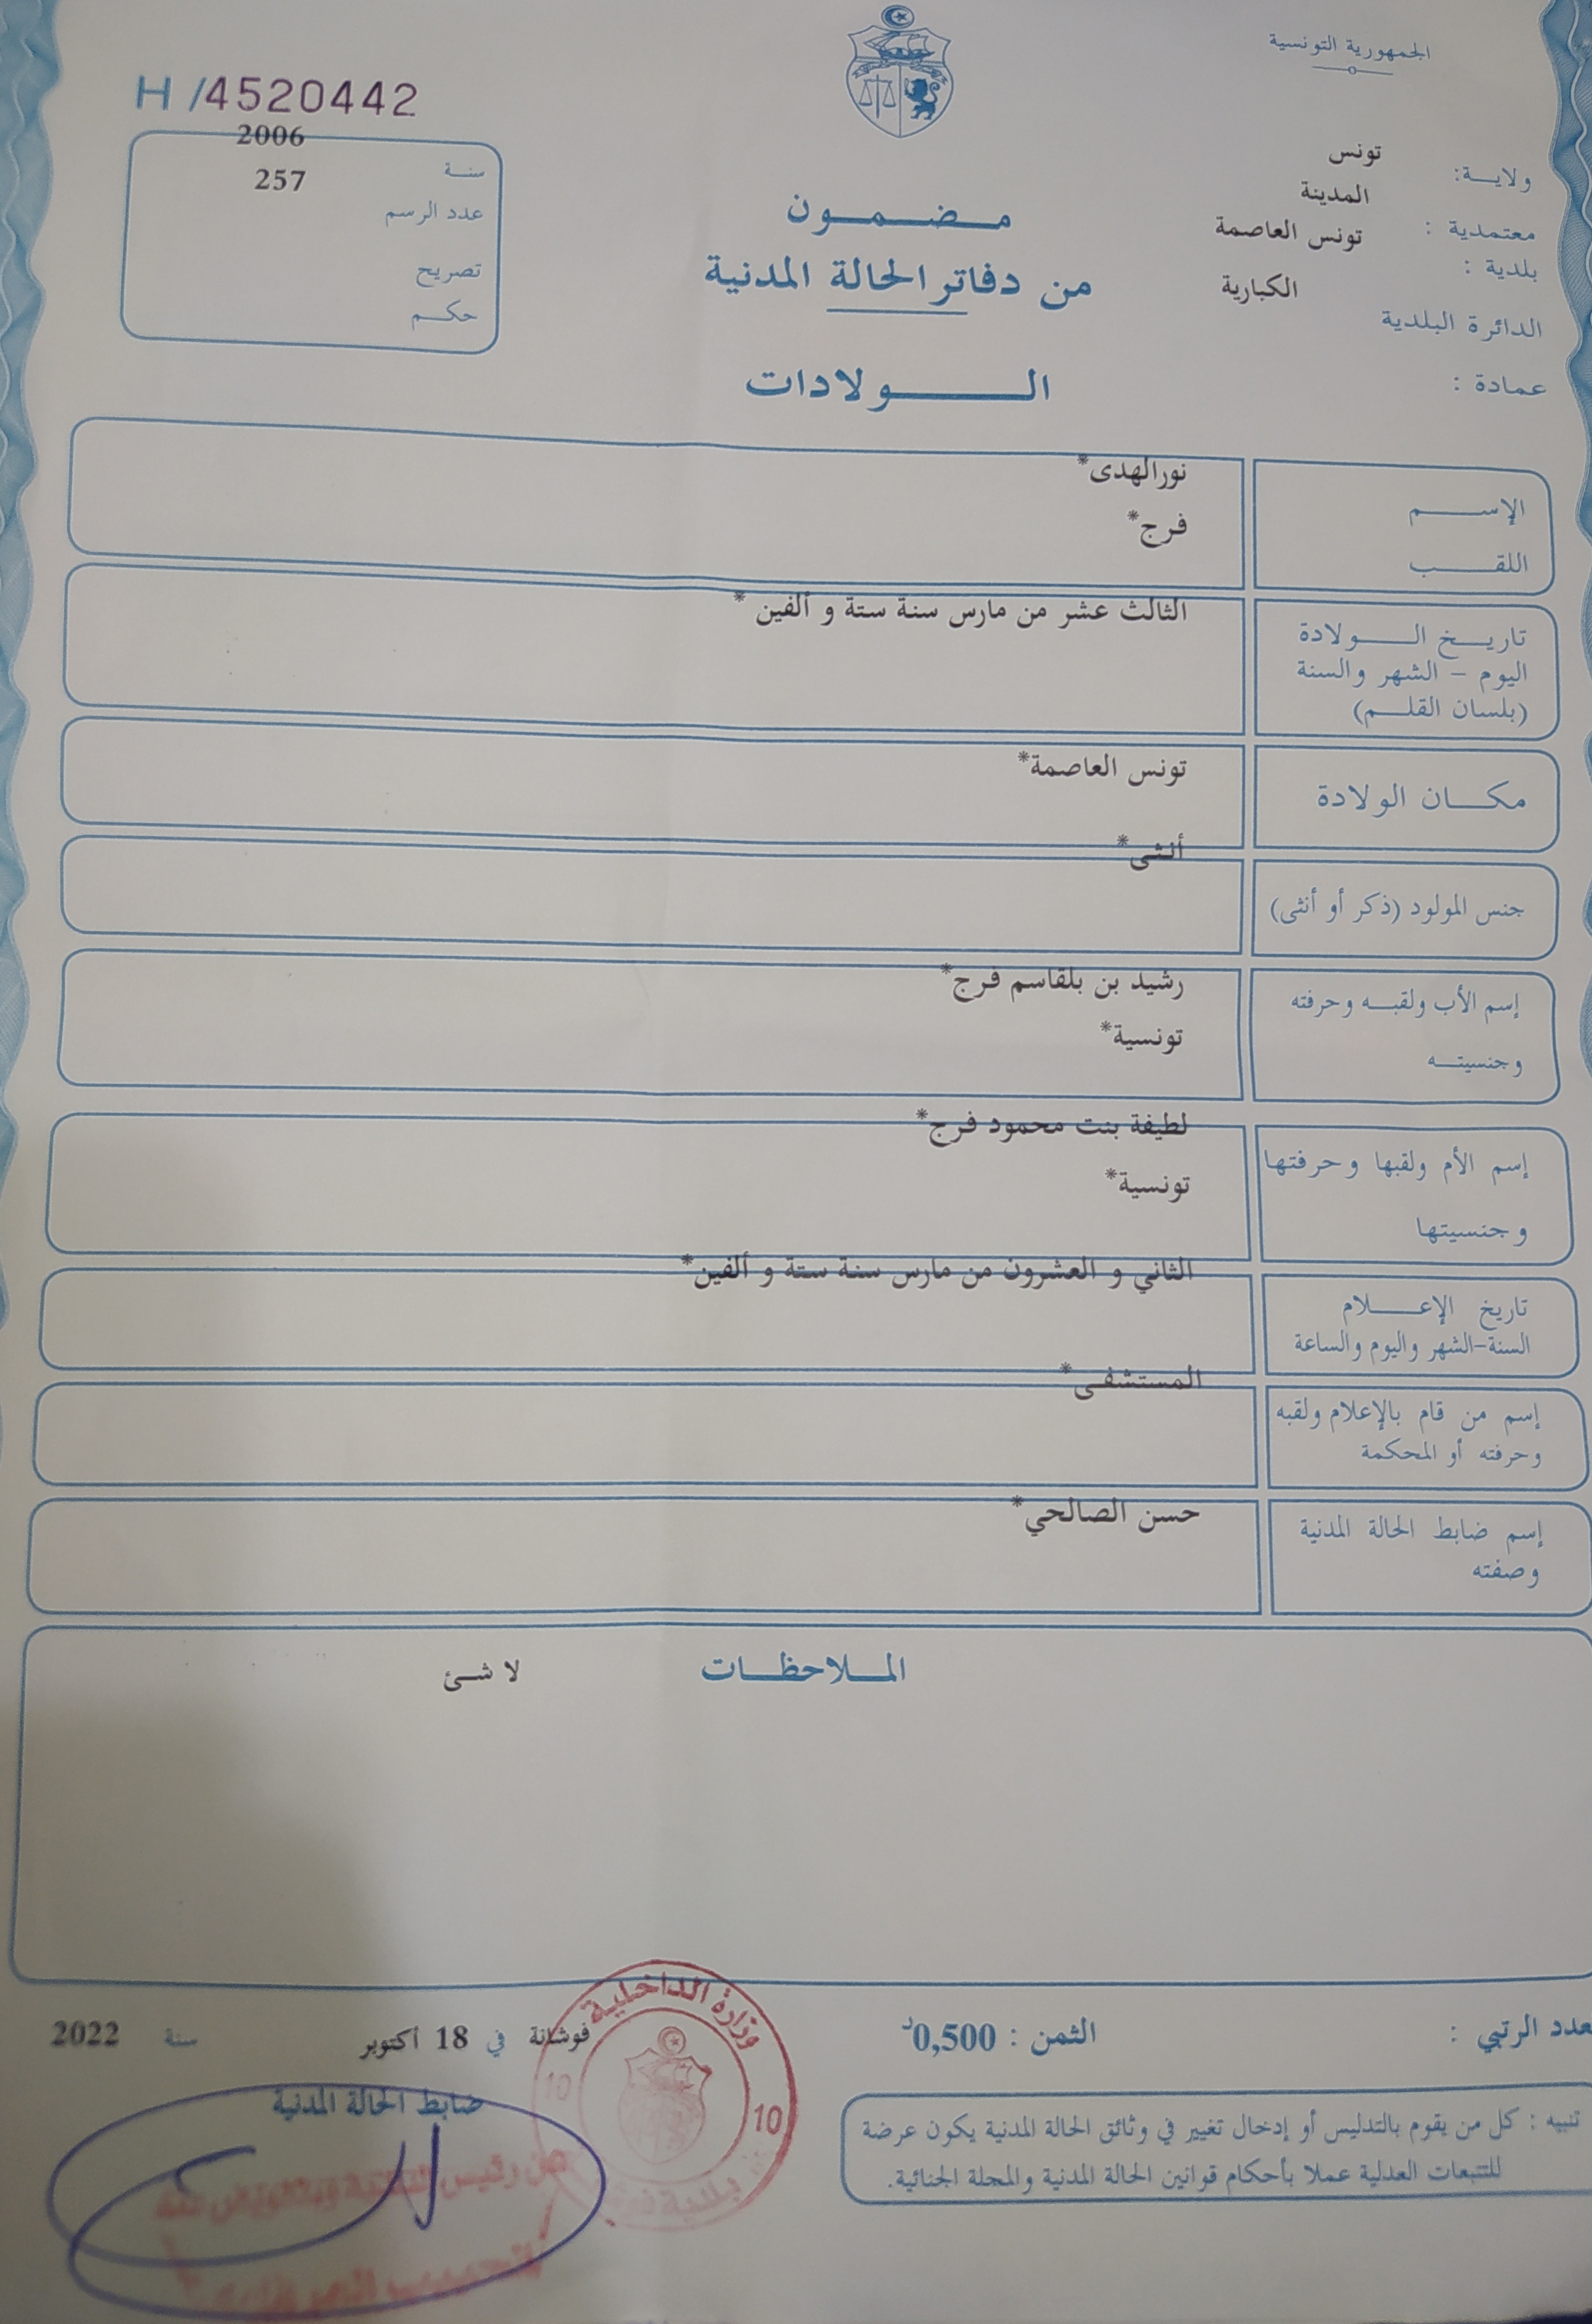 الجمهورية التونسية
H /4520442
ولايـــة: تونس
معتمدية : المدينة
بلدية : تونس العاصمة
الدائرة البلدية الكبارية
عمادة :
سنـة 2006
عدد الرسم 257
تصريح
حكـم
مـضـمـون
من دفاتر الحالة المدنية
الـولادات
الإسـم نورالهدى*
اللقـب فرج*
تاريـخ الـولادة الثالث عشر من مارس سنة ستة و ألفين *
اليوم - الشهر والسنة
(بلسان القلـم)
مكـان الولادة تونس العاصمة*
جنس المولود (ذكر أو أنثى) أنثى*
إسم الأب ولقبـه وحرفته رشيد بن بلقاسم فرج*
وجنسيتـه تونسية*
إسم الأم ولقبها وحرفتها لطيفة بنت محمود فرج*
وجنسيتها تونسية*
تاريخ الإعـلام الثاني و العشرون من مارس سنة ستة و ألفين*
السنة-الشهر واليوم والساعة
إسم من قام بالإعلام ولقبه المستشفى*
وحرفته أو المحكمة
إسم ضابط الحالة المدنية حسن الصالحي*
وصفته
الملاحظـات لا شئ
عدد الرتبي :
الثمن : 0,500د
فوشانة في 18 أكتوبر سنة 2022
ضابط الحالة المدنية
وزارة الداخلية
10 10
بلدية
عن رئيس
تنبيه : كل من يقوم بالتدليس أو إدخال تغيير في وثائق الحالة المدنية يكون عرضة
للتتبعات العدلية عملا بأحكام قوانين الحالة المدنية والمجلة الجنائية.